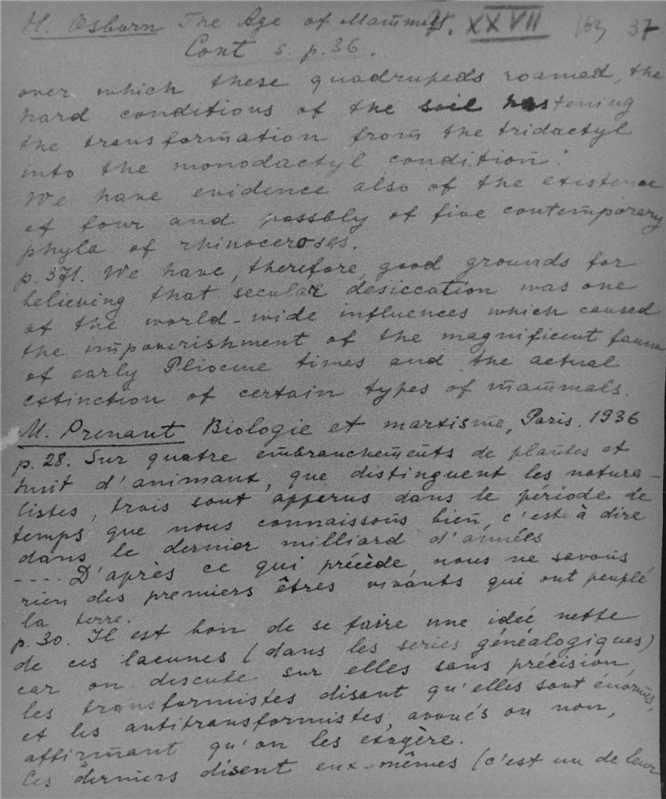 H. Osborn The Age of Mammals. XXVII 37
Cont s. p. 36.
over which these quadrupeds roamed, the
hard conditions of the soil hastening
the transformation from the tridactyl
into the monodactyl condition.
We have evidence also of the existence
of four and possbly of five contemporary
phyla of rhinoceroses.
p. 371. We have, therefore, good grounds for
believing that secular desiccation was one
of the world-wide influences which caused
the impoverishment of the magnificent fauna
of early Pliocene times and the actual
extinction of certain types of mammals.
M. Prenant Biologie et marxisme, Paris. 1936
p. 28. Sur quatre embranchements de plantes et
huit d'animaux, que distinguent les natura-
listes, trois sont apparus dans le période de
temps que nous connaissons bien, c'est à dire
dans le dernier milliard d'années
.... D'après ce qui précède, nous ne savons
rien des premiers êtres vivants qui ont peuplé
la terre.
p. 30. Il est bon de se faire une idée nette
de ces lacunes (dans les series généalogiques)
car on discute sur elles sans précision,
les transformistes disant qu'elles sont énormes,
et les antitransformistes, avoués ou non,
affirmant qu'on les exagère.
Ces derniers disent eux-mêmes (c'est un de leur